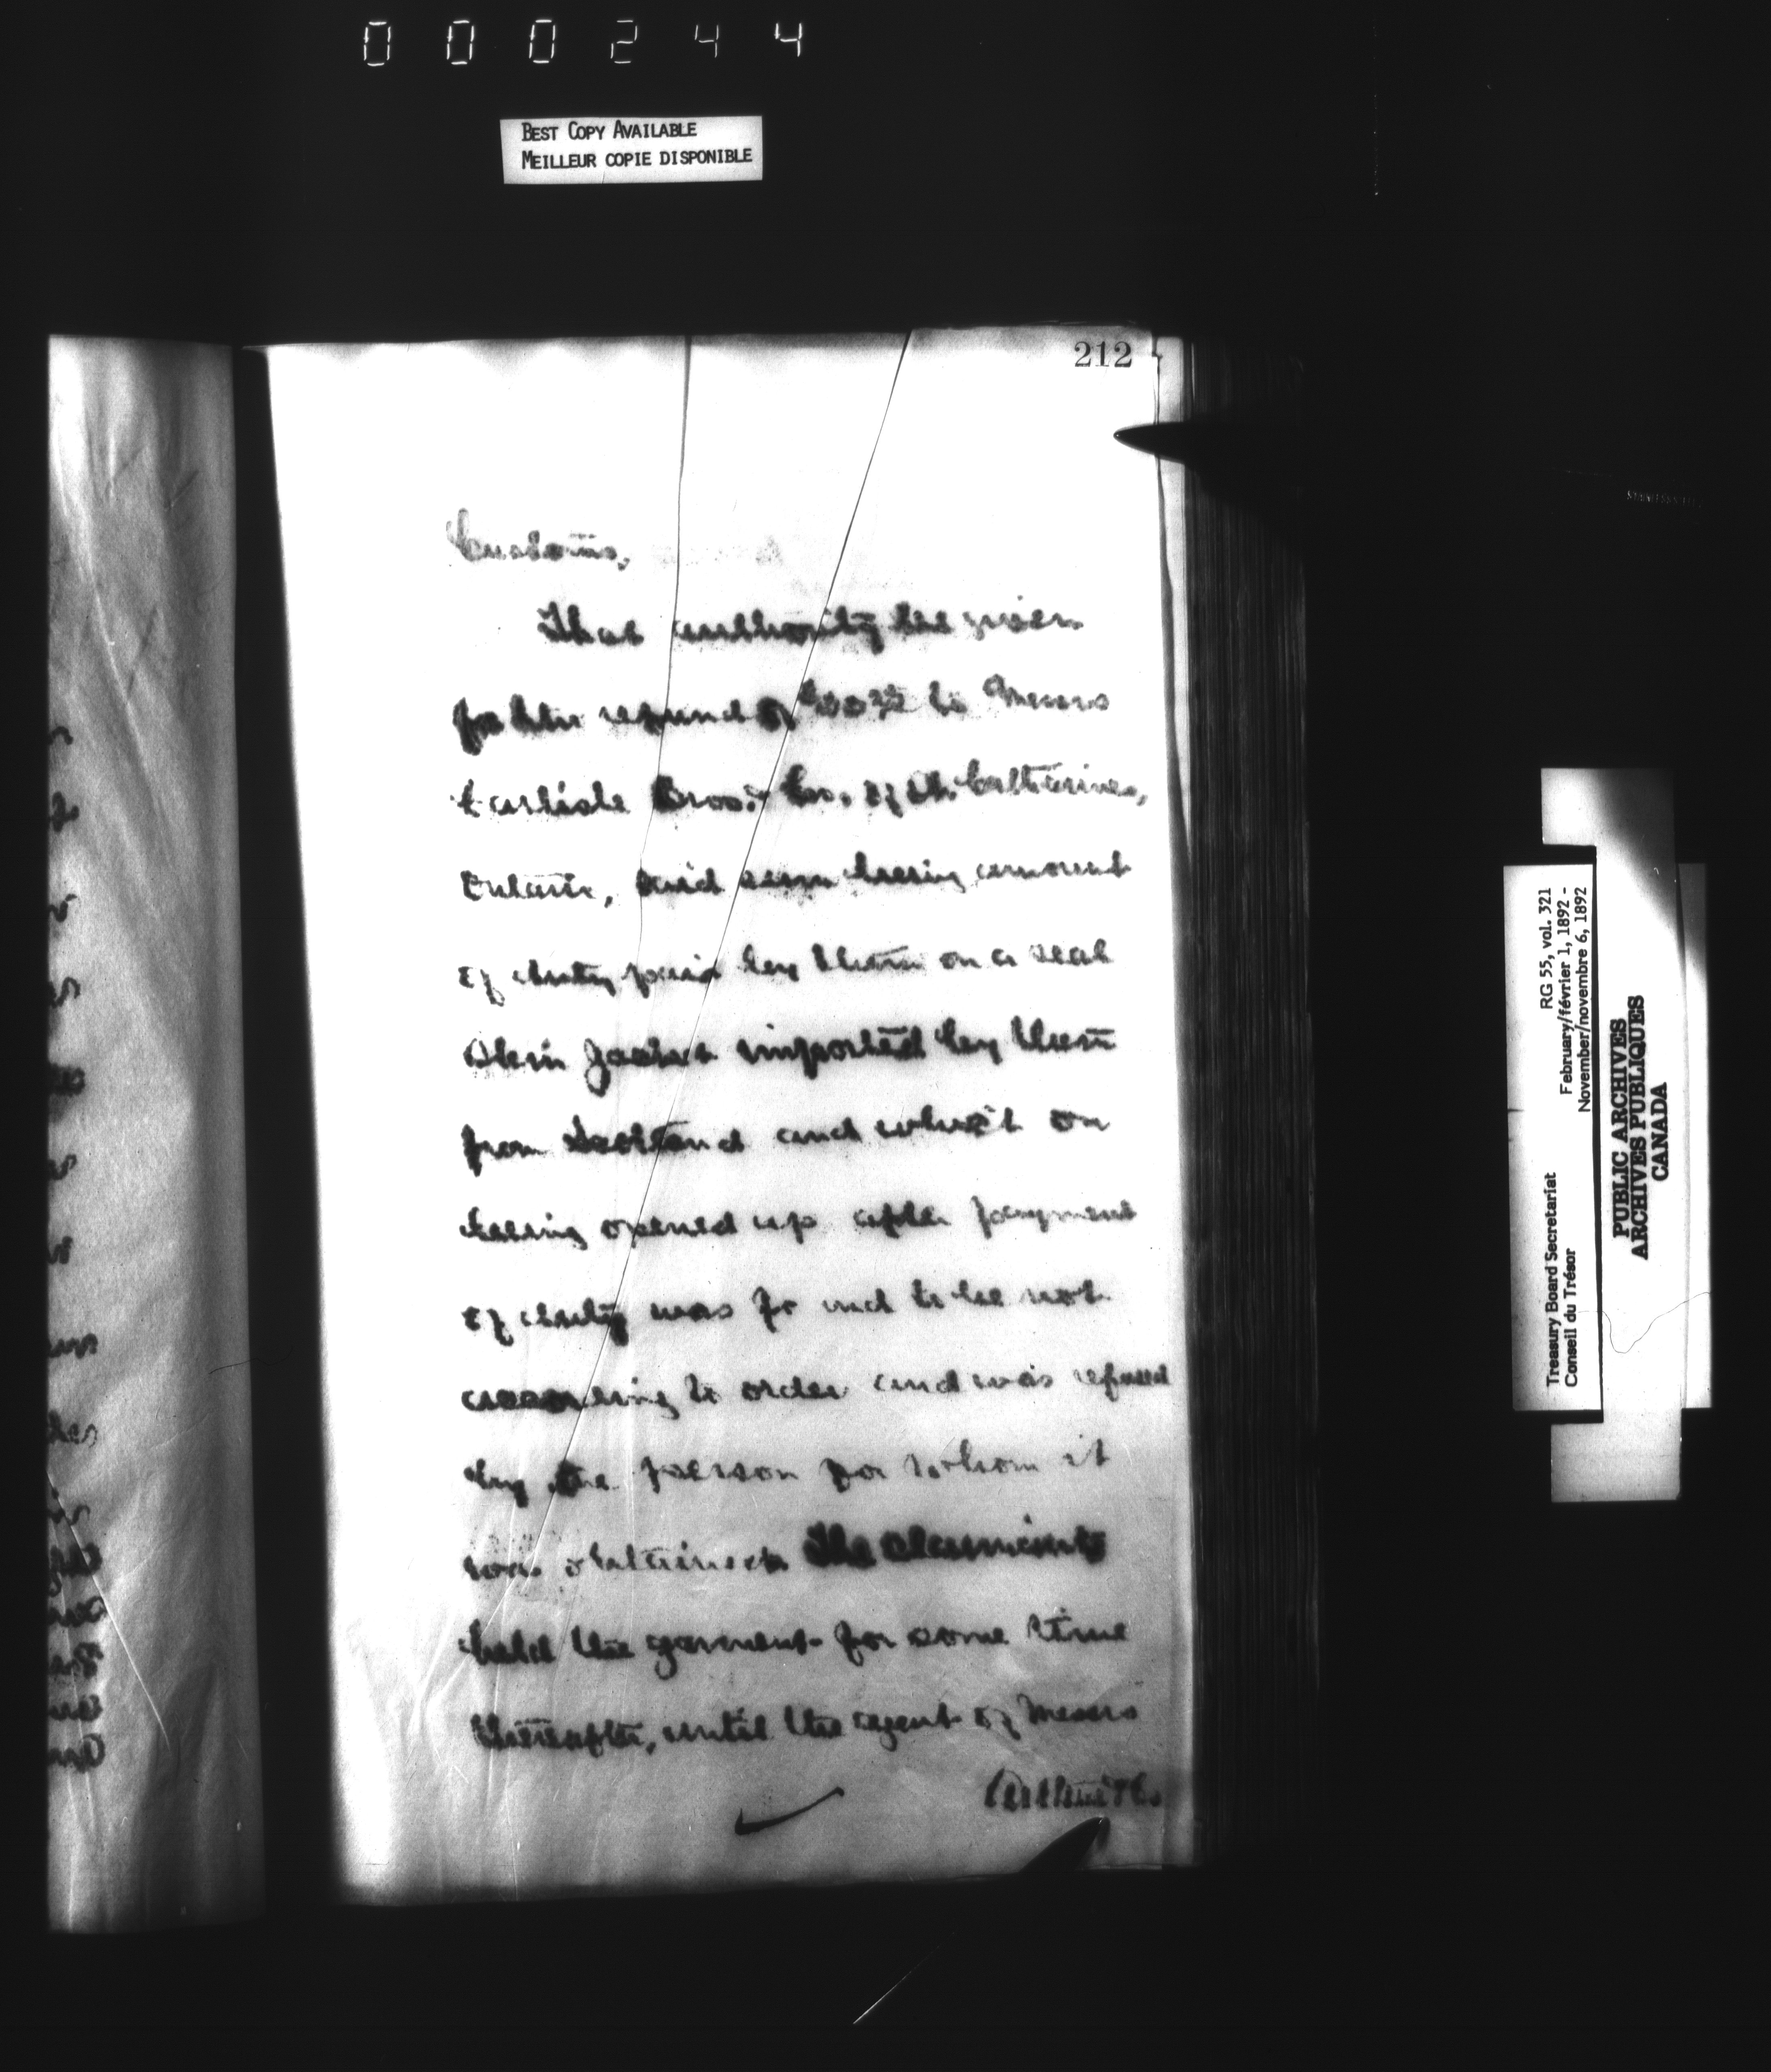 000244
BEST COPY AVAILABLE
MEILLEUR COPIE DISPONIBLE
212
Customs,
That authority be given
for the refund of to Messrs
Carlisle Bros. & Co. of St. Catharines,
Ontario, said sum being amount
of duty paid by them on a seal
skin Jacket imported by them
from Scotland and which on
being opened up after payment
of duty was found to be not
according to order and was refused
by the person for whom it
was obtained. The claimants
held the garment for some time
thereafter, until the agent of Messrs
Arthur & Co
Treasury Board Secretariat RG 55, vol. 321
Conseil du Trésor February/février 1, 1892 -
November/novembre 6, 1892
PUBLIC ARCHIVES
ARCHIVES PUBLIQUES
CANADA